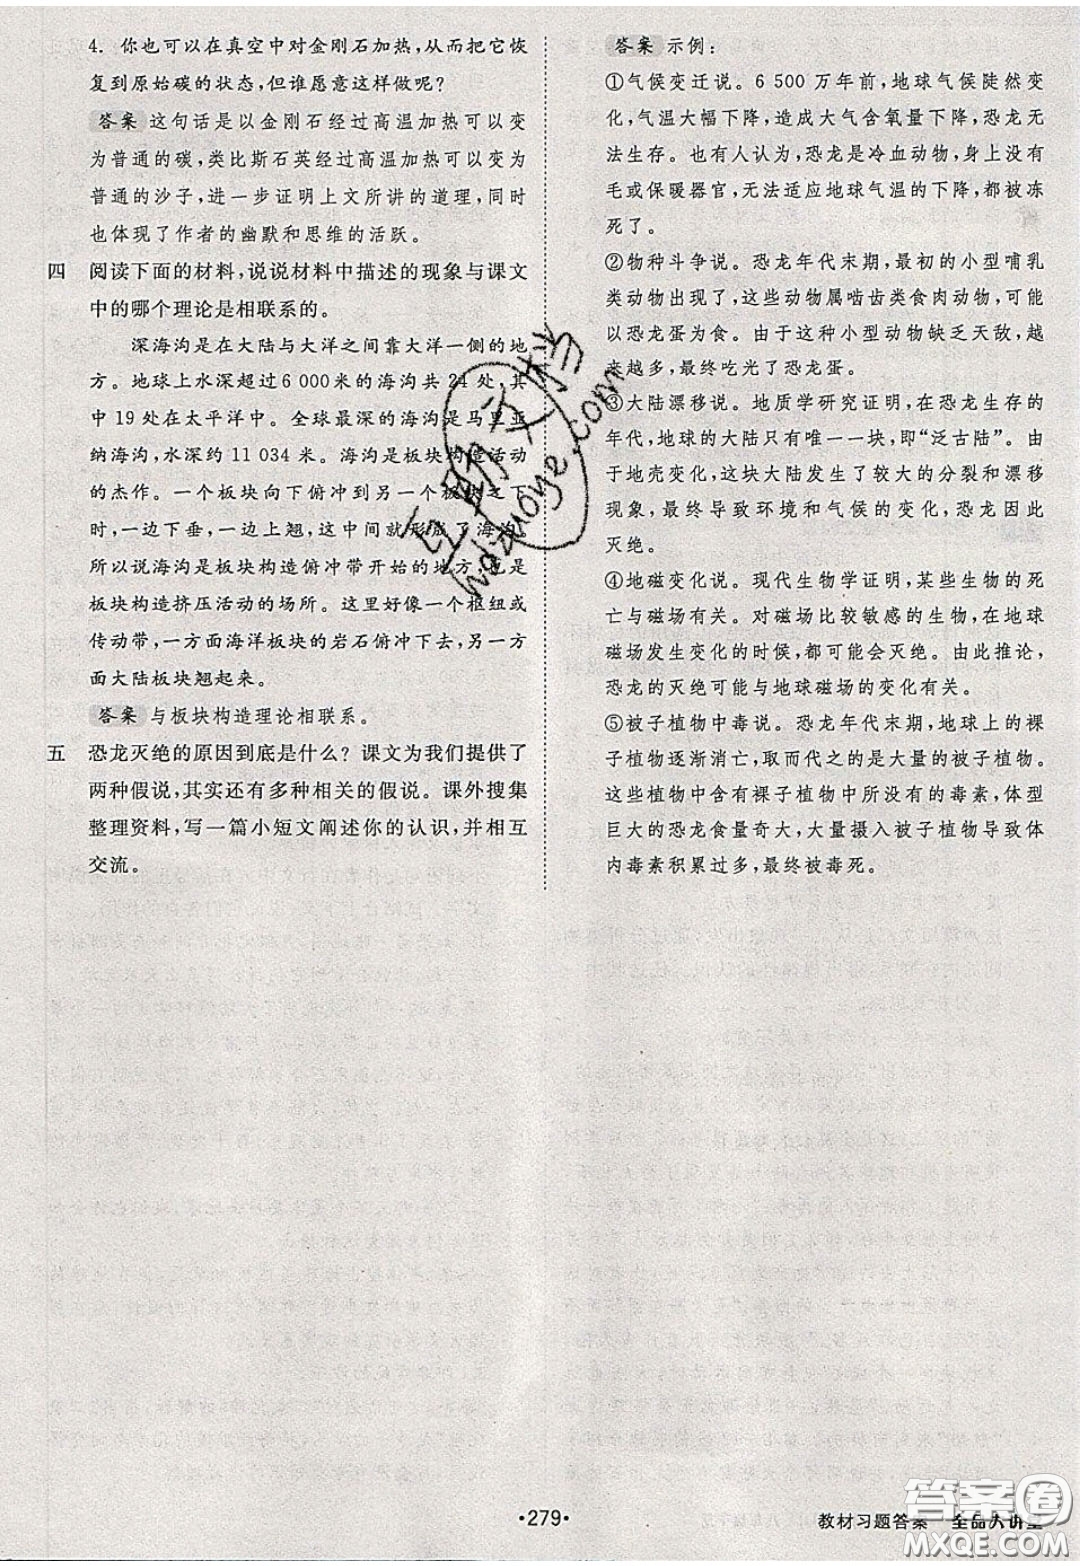 4. 你也可以在真空中对金刚石加热,从而把它恢
复到原始碳的状态,但谁愿意这样做呢?
答案 这句话是以金刚石经过高温加热可以变
为普通的碳,类比斯石英经过高温加热可以变为
普通的沙子,进一步证明上文所讲的道理,同时
也体现了作者的幽默和思维的活跃。
四 阅读下面的材料,说说材料中描述的现象与课文
中的哪个理论是相联系的。
深海沟是在大陆与大洋之间靠大洋一侧的地
方。地球上水深超过6 000米的海沟共24处,其
中19处在太平洋中。全球最深的海沟是马里亚
纳海沟,水深约11 034米。海沟是板块构造活动
的杰作。一个板块向下俯冲到另一个板块之下
时,一边下垂,一边上翘,这中间就形成了海沟,
所以说海沟是板块构造俯冲带开始的地方,也是
板块构造挤压活动的场所。这里好像一个枢纽或
传动带,一方面海洋板块的岩石俯冲下去,另一方
面大陆板块翘起来。
答案 与板块构造理论相联系。
五 恐龙灭绝的原因到底是什么?课文为我们提供了
两种假说,其实还有多种相关的假说。课外搜集
整理资料,写一篇小短文阐述你的认识,并相互
交流。
答案 示例:
①气候变迁说。6 500万年前,地球气候陡然变
化,气温大幅下降,造成大气含氧量下降,恐龙无
法生存。也有人认为,恐龙是冷血动物,身上没有
毛或保暖器官,无法适应地球气温的下降,都被冻
死了。
②物种斗争说。恐龙年代末期,最初的小型哺乳
类动物出现了,这些动物属啮齿类食肉动物,可能
以恐龙蛋为食。由于这种小型动物缺乏天敌,越
来越多,最终吃光了恐龙蛋。
③大陆漂移说。地质学研究证明,在恐龙生存的
年代,地球的大陆只有唯一一块,即“泛古陆”。由
于地壳变化,这块大陆发生了较大的分裂和漂移
现象,最终导致环境和气候的变化,恐龙因此
灭绝。
④地磁变化说。现代生物学证明,某些生物的死
亡与磁场有关。对磁场比较敏感的生物,在地球
磁场发生变化的时候,都可能灭绝。由此推论,
恐龙的灭绝可能与地球磁场的变化有关。
⑤被子植物中毒说。恐龙年代末期,地球上的裸
子植物逐渐消亡,取而代之的是大量的被子植物。
这些植物中含有裸子植物中所没有的毒素,体型
巨大的恐龙食量奇大,大量摄入被子植物导致体
内毒素积累过多,最终被毒死。
互助文档
hdzuoye.com
·279·
教材习题答案 全品大讲堂
答案圈
MXQE.COM